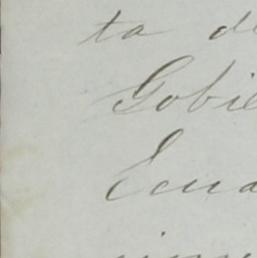 ta d
Gobie
Ecua